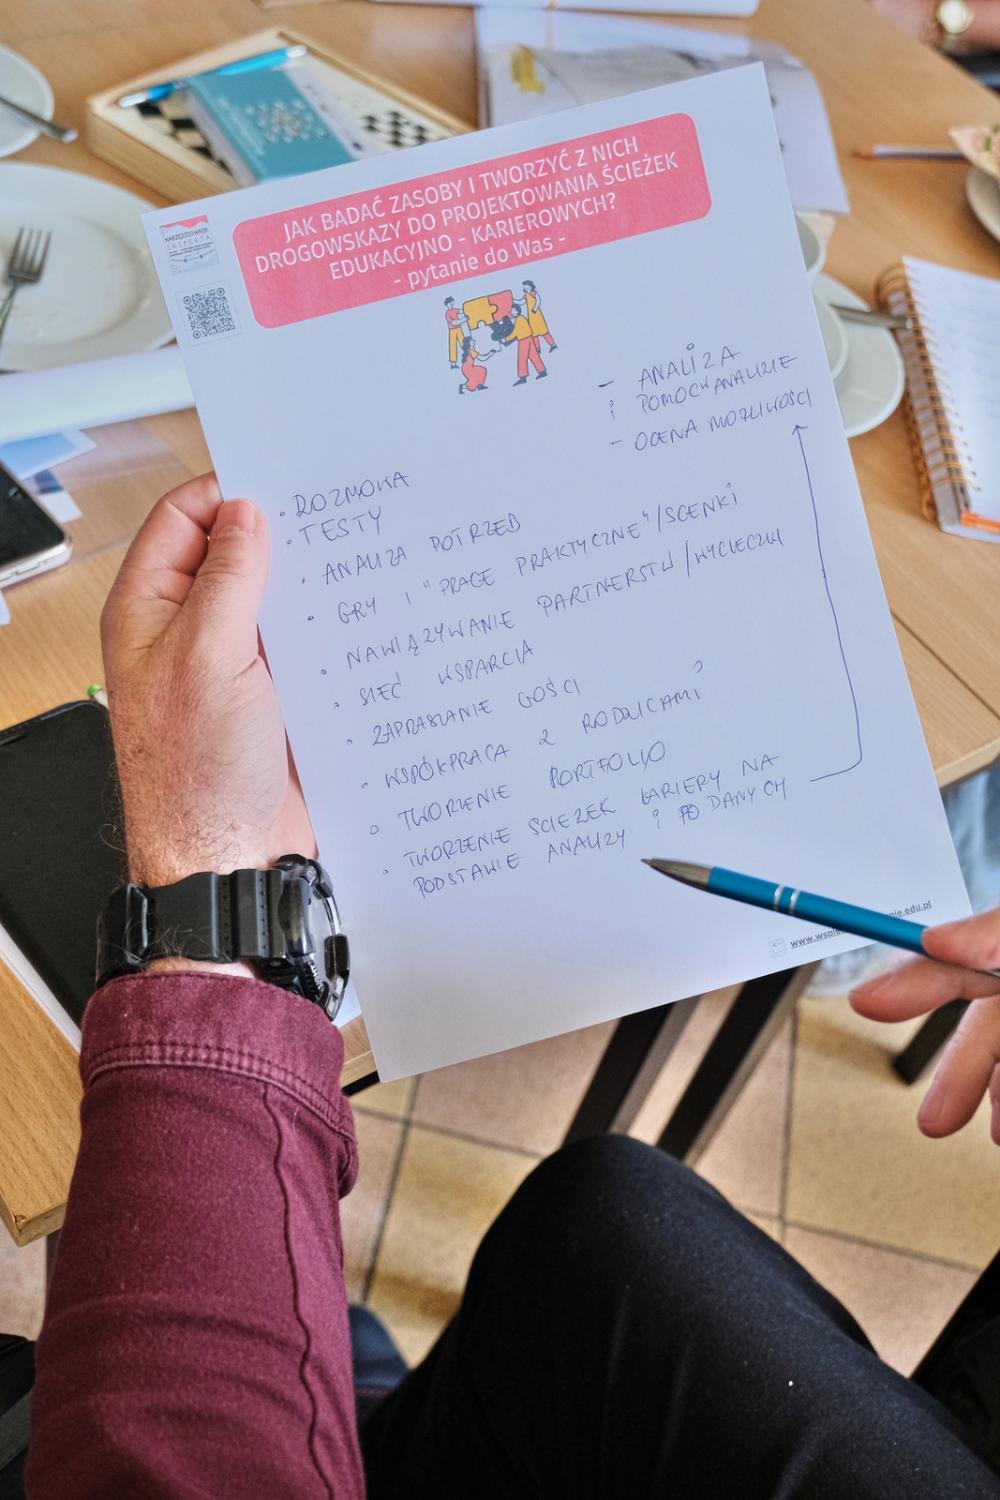 NARZĘDZIOWNIK
EKSPERTA
JAK BADAĆ ZASOBY I TWORZYĆ Z NICH
DROGOWSKAZY DO PROJEKTOWANIA ŚCIEŻEK
EDUKACYJNO - KARIEROWYCH?
- pytanie do Was -
- ANALIZA
i POMOC W ANALIZIE
- OCENA MOŻLIWOŚCI
• ROZMOWA
• TESTY
• ANALIZA POTRZEB
• GRY I "PRACE PRAKTYCZNE"/SCENKI
• NAWIĄZYWANIE PARTNERSTW/WYCIECZKI
• SIEĆ WSPARCIA
• ZAPRASZANIE GOŚCI
• WSPÓŁPRACA Z RODZICAMI
• TWORZENIE PORTFOLIO
• TWORZENIE SCIEZEK KARIERY NA
PODSTAWIE ANALIZY i DANYCH